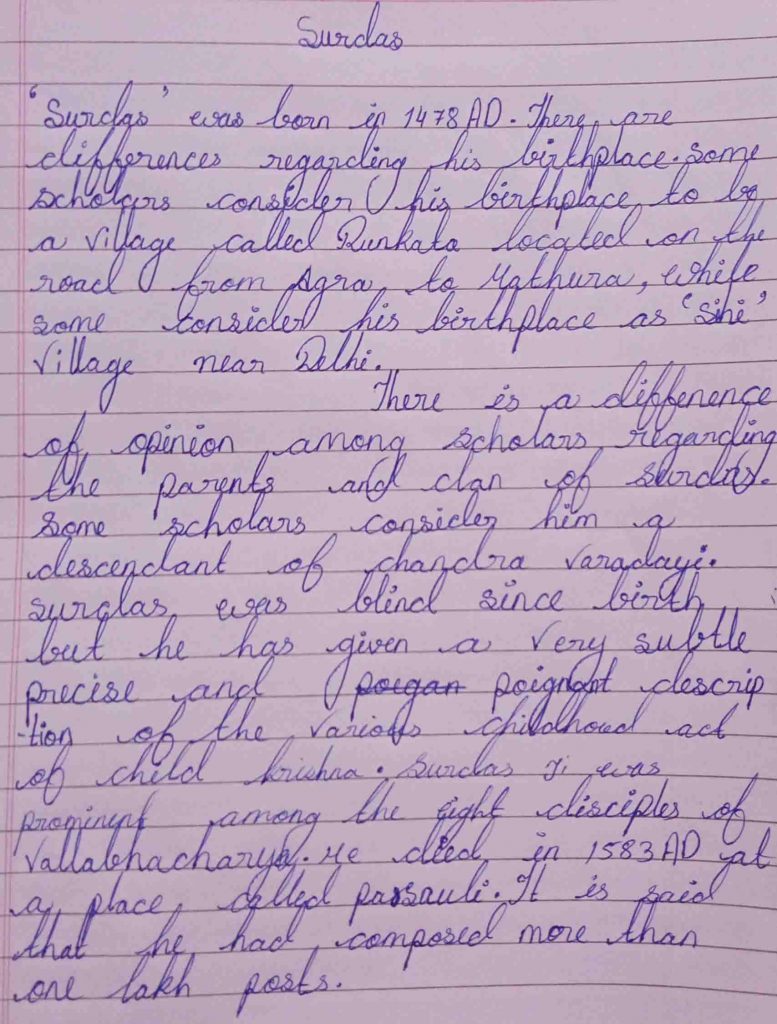 Surdas
'Surdas' was born in 1478 AD. There are
differences regarding his birthplace. Some
scholars consider his birthplace to be
a village called Runkata located on the
road from Agra to Mathura, while
some consider his birthplace as 'Sihi'
village near Delhi.
There is a difference
of opinion among scholars regarding
the parents and clan of surdas.
Some scholars consider him a
descendant of chandra varadayi.
surdas was blind since birth
but he has given a very subtle
precise and poigan poignant descrip
-tion of the various childhood act
of child krishna. Surdas Ji was
prominent among the eight disciples of
Vallabhacharya. He died in 1583 AD at
a place called parsauli. It is said
that he had composed more than
one lakh posts.